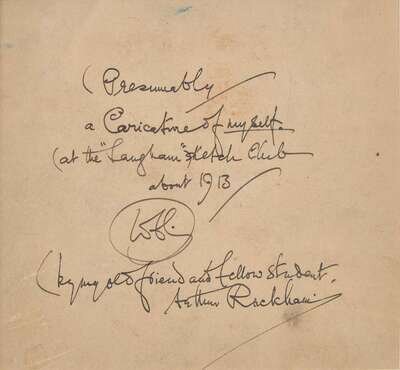 (Presumably
a Caricature of myself.
(at the "Langham" Sketch Club
about 1913
(by my old friend and fellow student.
Arthur Rackham